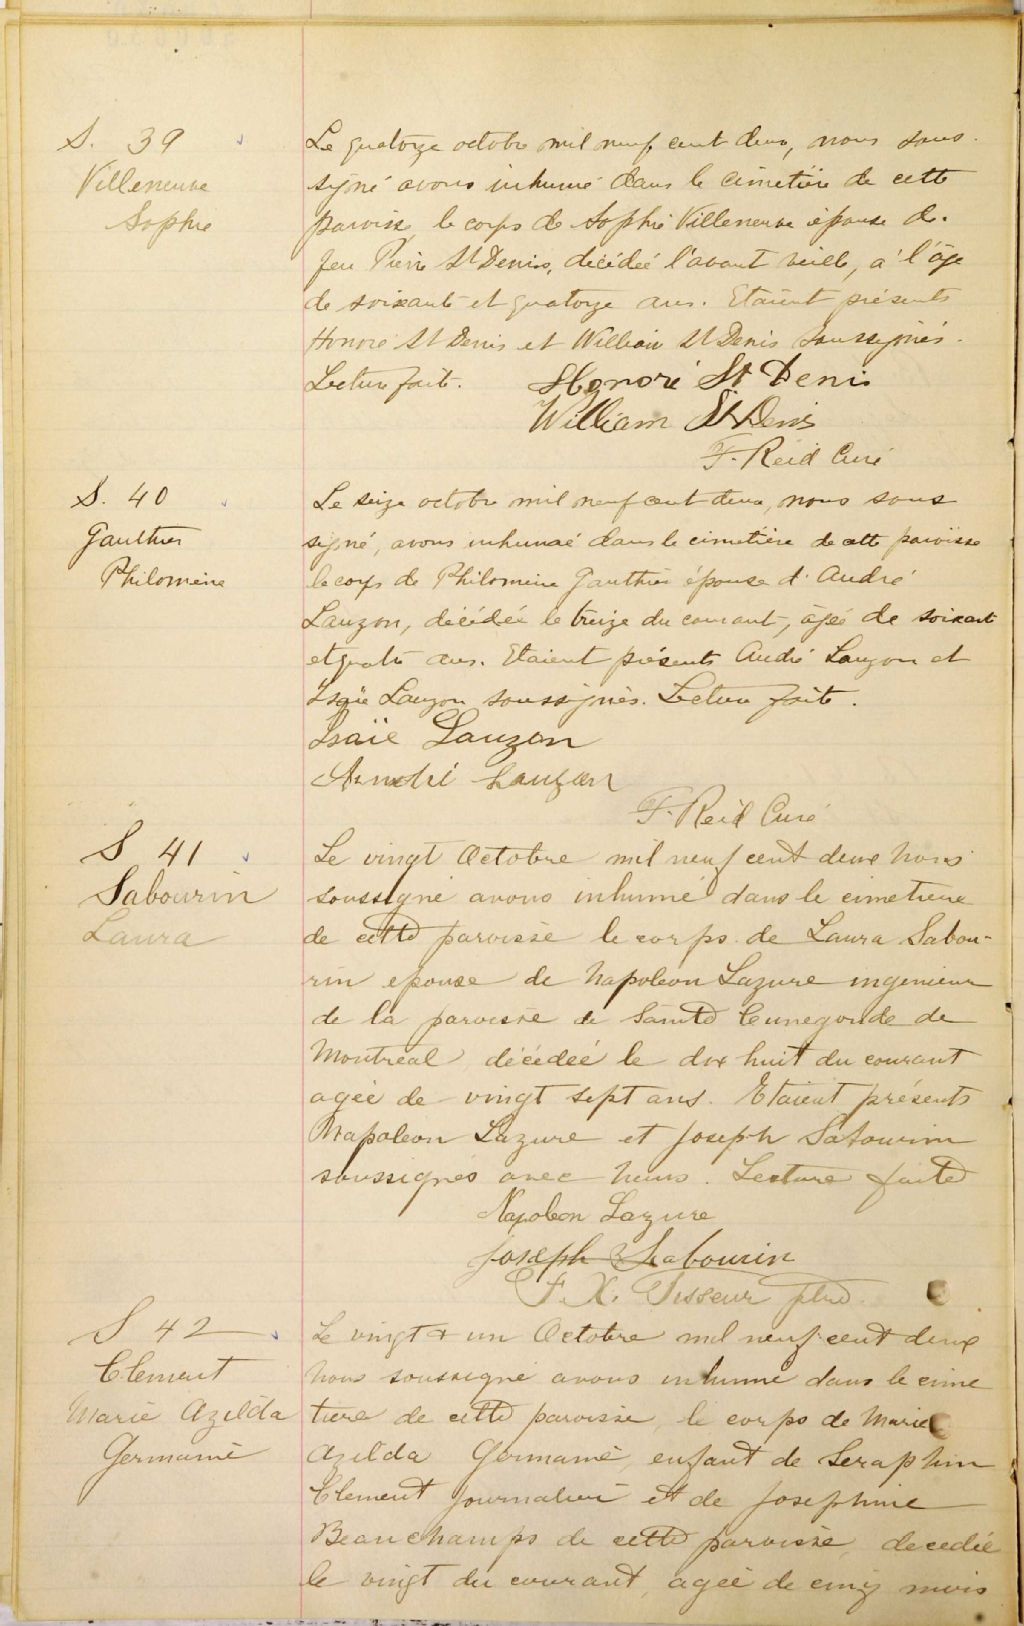 S. 39
Villeneuve
Sophie
Le quatorze octobre mil neuf cent deux, nous sous-
signé avons inhumé dans le cimetière de cette
paroisse, le corps de Sophie Villeneuve épouse de
feu Pierre St Denis, décédée l'avant veille, a l'âge
de soixante et quatorze ans. Etaient présents
Honoré St Denis et William St Denis soussignés.
Lecture faite.
Honoré St Denis
William St Denis
F. Reid Curé
S. 40
Gauthier
Philomène
Le seize octobre mil neuf cent deux, nous sous
signé, avons inhumé dans le cimetière de cette paroisse
le corps de Philomène Gauthier épouse d'André
Lauzon, décédée le treize du courant, âgée de soixante
et quatre ans. Etaient présents André Lauzon et
Isaïe Lauzon soussignés. Lecture faite.
Isaïe Lauzon
André Lauzon
F. Reid Curé
S 41
Sabourin
Laura
Le vingt Octobre mil neuf cent deux nous
soussigné avons inhumé dans le cimetiere
de cette paroisse le corps de Laura Sabou-
rin epouse de Napoleon Lazure ingenieur
de la paroisse de Sainte Cunegonde de
Montréal décédée le dix huit du courant
agée de vingt sept ans. Etaient présents
Napoleon Lazure et Joseph Sabourin
soussignés avec nous. Lecture faite
Napoleon Lazure
Joseph Sabourin
F. X. Tisseur ptre.
S 42
Clement
Marie Azilda
Germaine
Le vingt & un Octobre mil neuf cent deux
Nous soussigné avons inhumé dans le cime
tiere de cette paroisse, le corps de Marie
Azilda Germaine, enfant de Seraphin
Clement journalier et de Josephine
Beauchamps de cette paroisse, decedée
le vingt du courant, agée de cinq mois